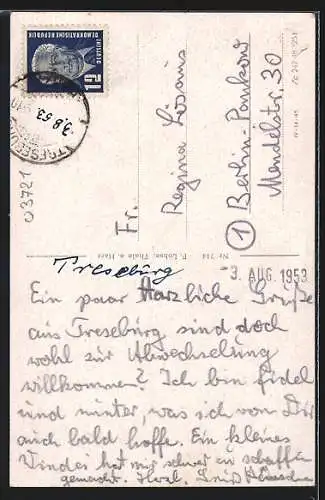 DEUTSCHE
DEMOKRATISCHE REPUBLIK
12
TRESEBURG
3.8.53
03721
Fr.
Regina
① Berlin-Pankow
Mendelstr. 30
Treseburg
3. AUG. 1953
Ein paar Herzliche Grüße
aus Treseburg sind doch
wohl zur Abwechselung
willkommen? Ich bin fidel
und munter, was ich von Dir
auch bald hoffe. Ein kleines
hat mir schwer zu schaffen
gemacht. Herzl. Gruß